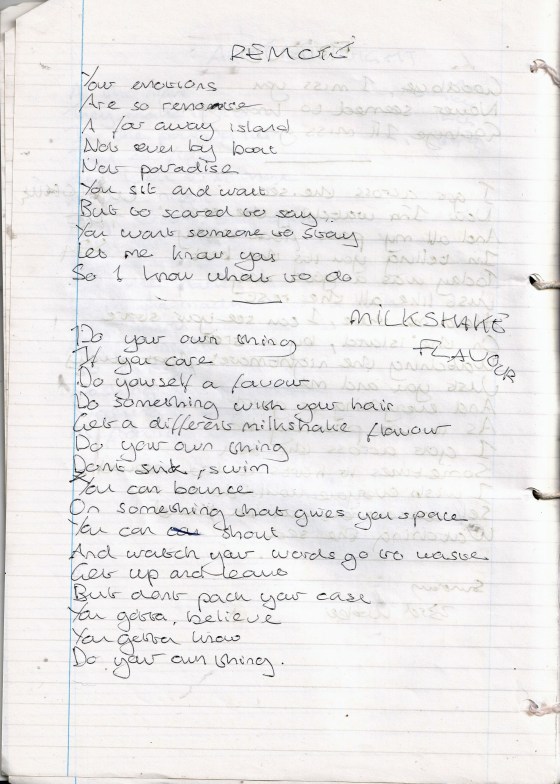 REMOTE
Your emotions
Are so remote
A far away island
Not ever by boat
Not paradise
You sit and wait
But to scared to say
You want someone to stay
Let me know you
So I know what to do
MILKSHAKE
FLAVOUR
Do your own thing
If you care
Do yourself a favour
Do something with your hair
Get a different milkshake flavour
Do your own thing
Dont sink, swim
You can bounce
On something that gives you space
You can shout
And watch your words go to waste
Get up and leave
But dont pack your case
You gotta, believe
You gotta know
Do your own thing.